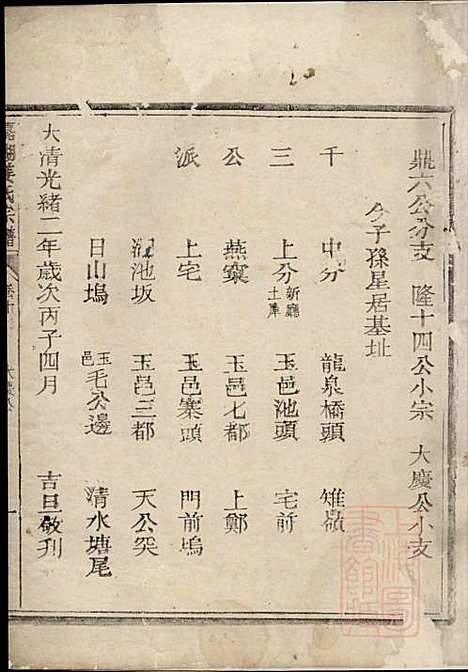 鼎六公分支 隆十四公小宗 大慶公小支
今子孫星居基址
千 中分 龍泉橋頭 雉嶺
三 上分 新廳土庫 玉邑池頭 宅前
公 燕窠 玉邑七都 上鄭
派 上宅 玉邑寨頭 門前塢
池坂 玉邑三都 天公突
日山塢 玉邑毛公邊 清水塘尾
大清光緒二年歲次丙子四月 吉旦敬刊
姜氏宗譜